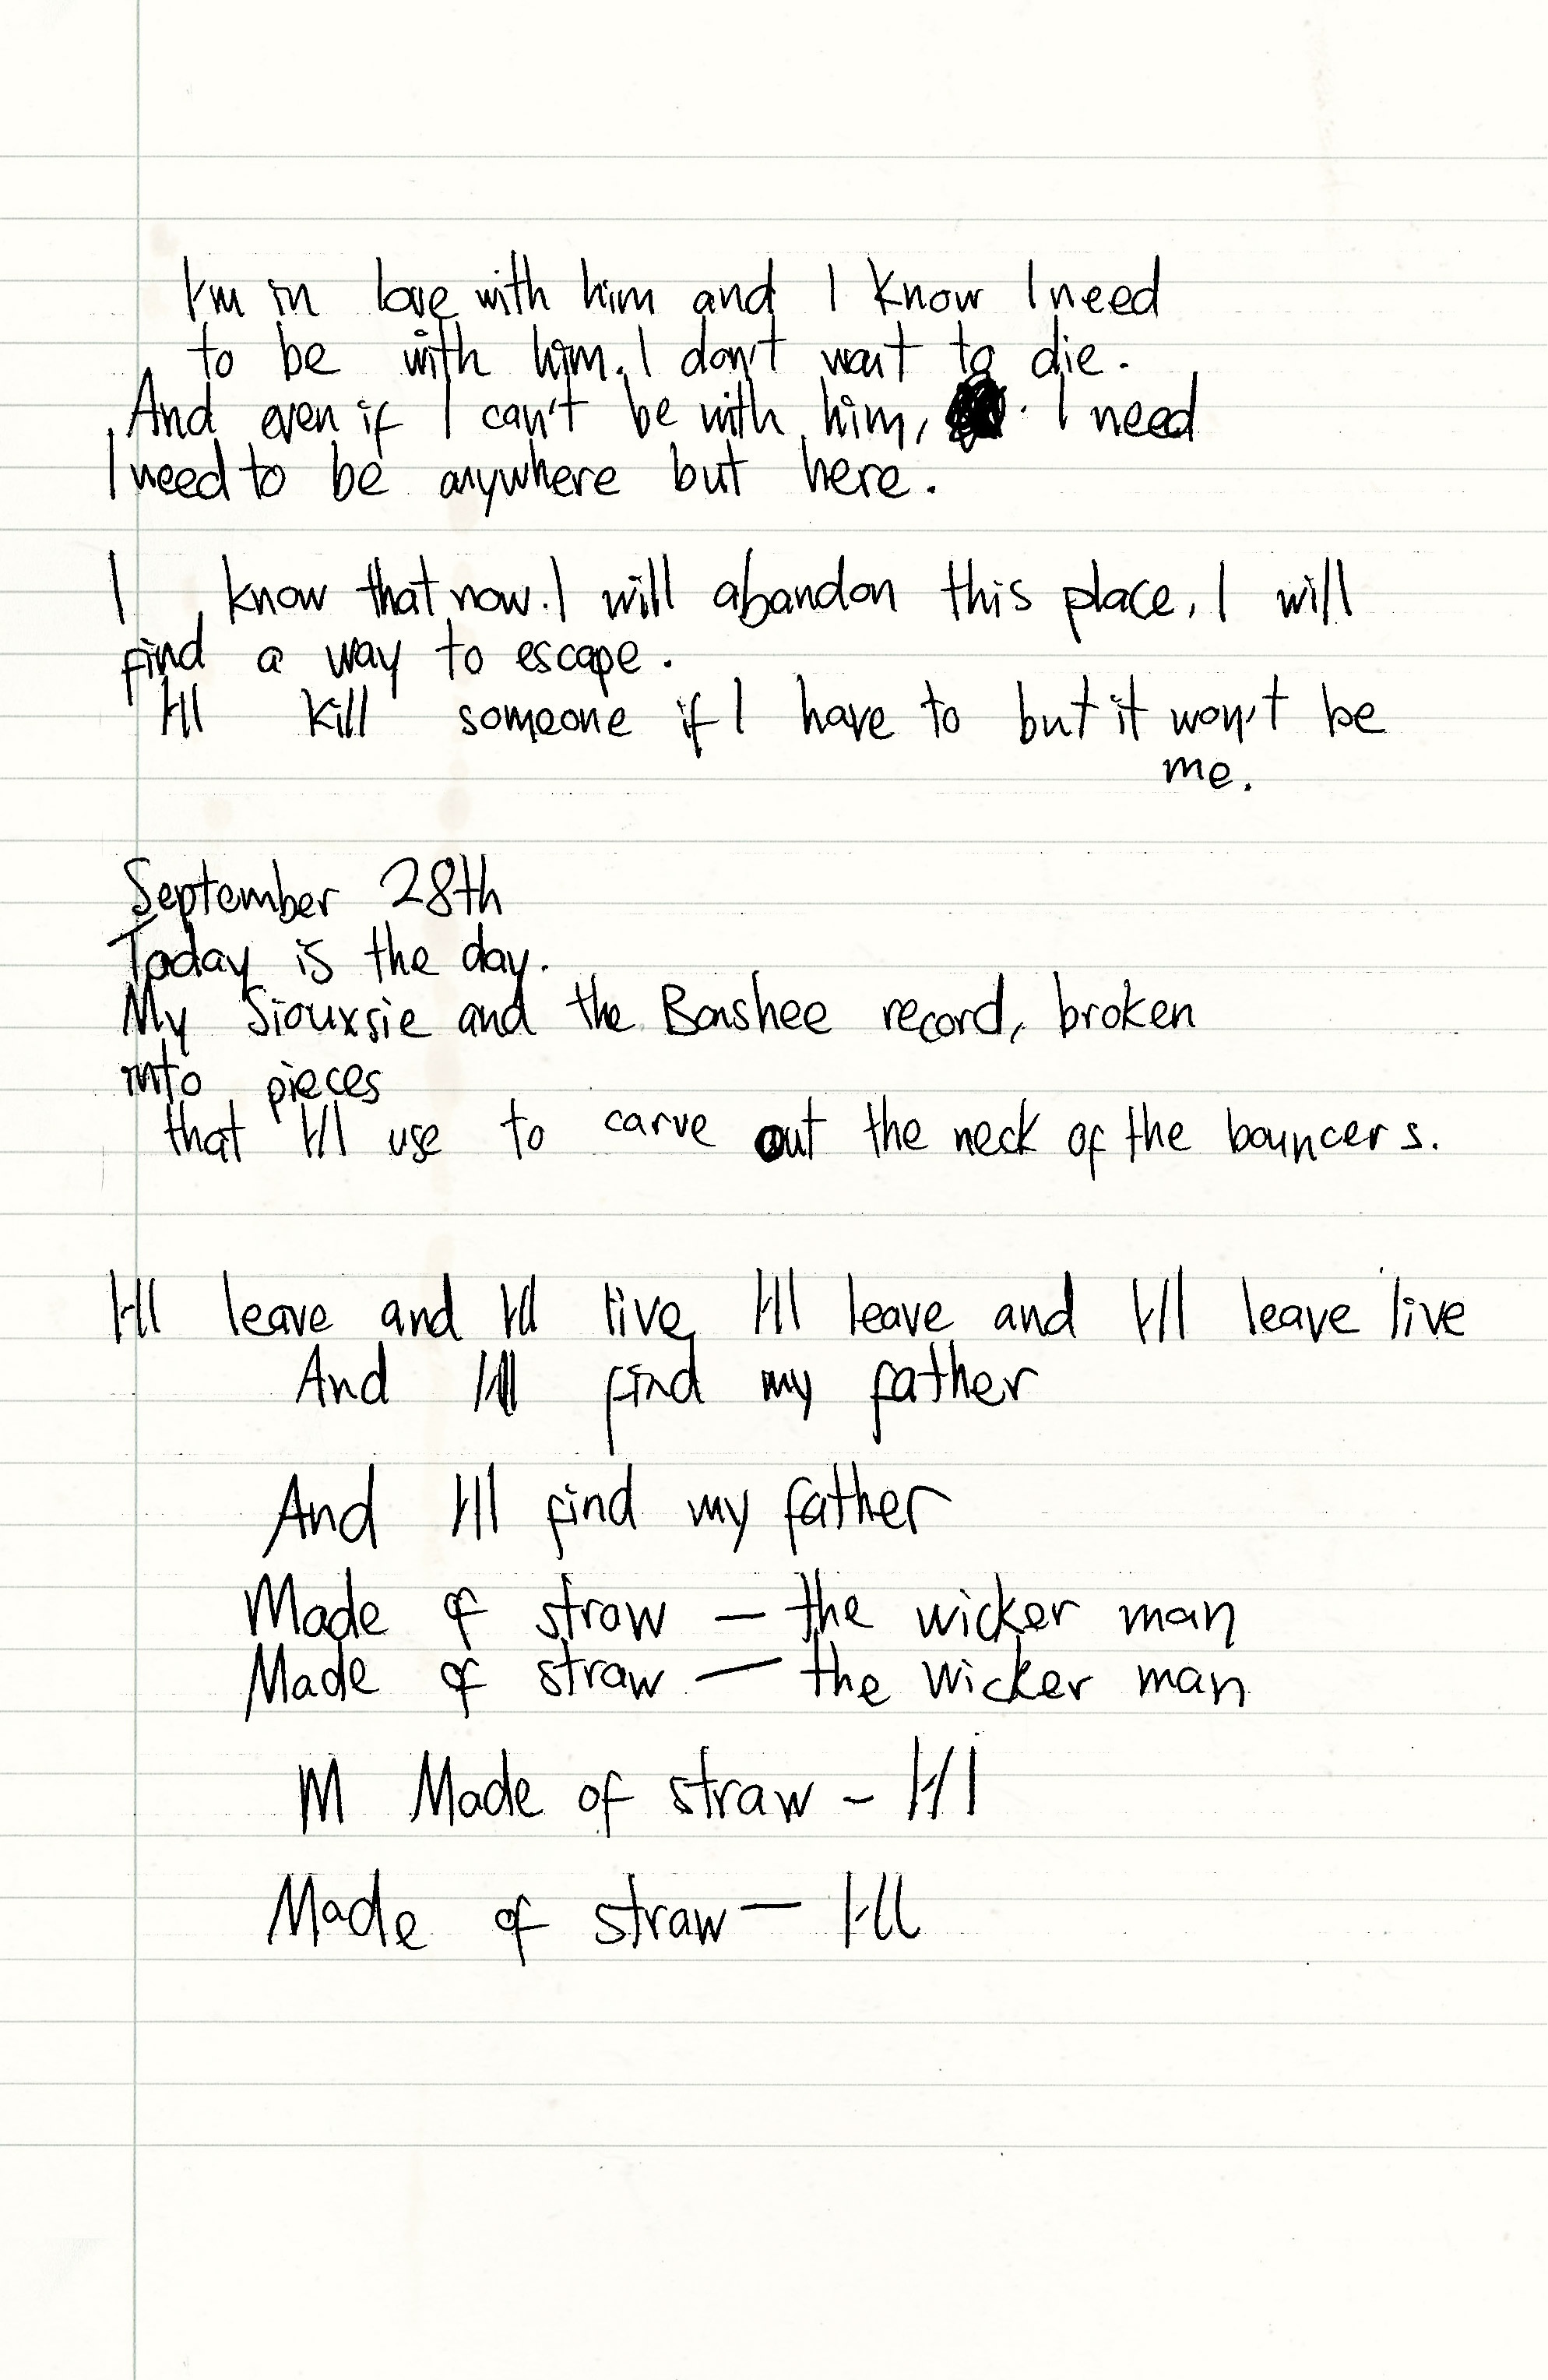 I'm in love with him and I know I need
to be with him. I don't want to die.
And even if I can't be with him, I need
I need to be anywhere but here.
I know that now. I will abandon this place. I will
find a way to escape.
I'll kill someone if I have to but it won't be
me.
September 28th
Today is the day.
My Siouxsie and the Banshee record, broken
into pieces
that I'll use to carve out the neck of the bouncers.
I'll leave and I'll live, I'll leave and I'll leave live
And I'll find my father
And I'll find my father
Made of straw — the wicker man
Made of straw — the wicker man
M Made of straw - I'll
Made of straw — I'll